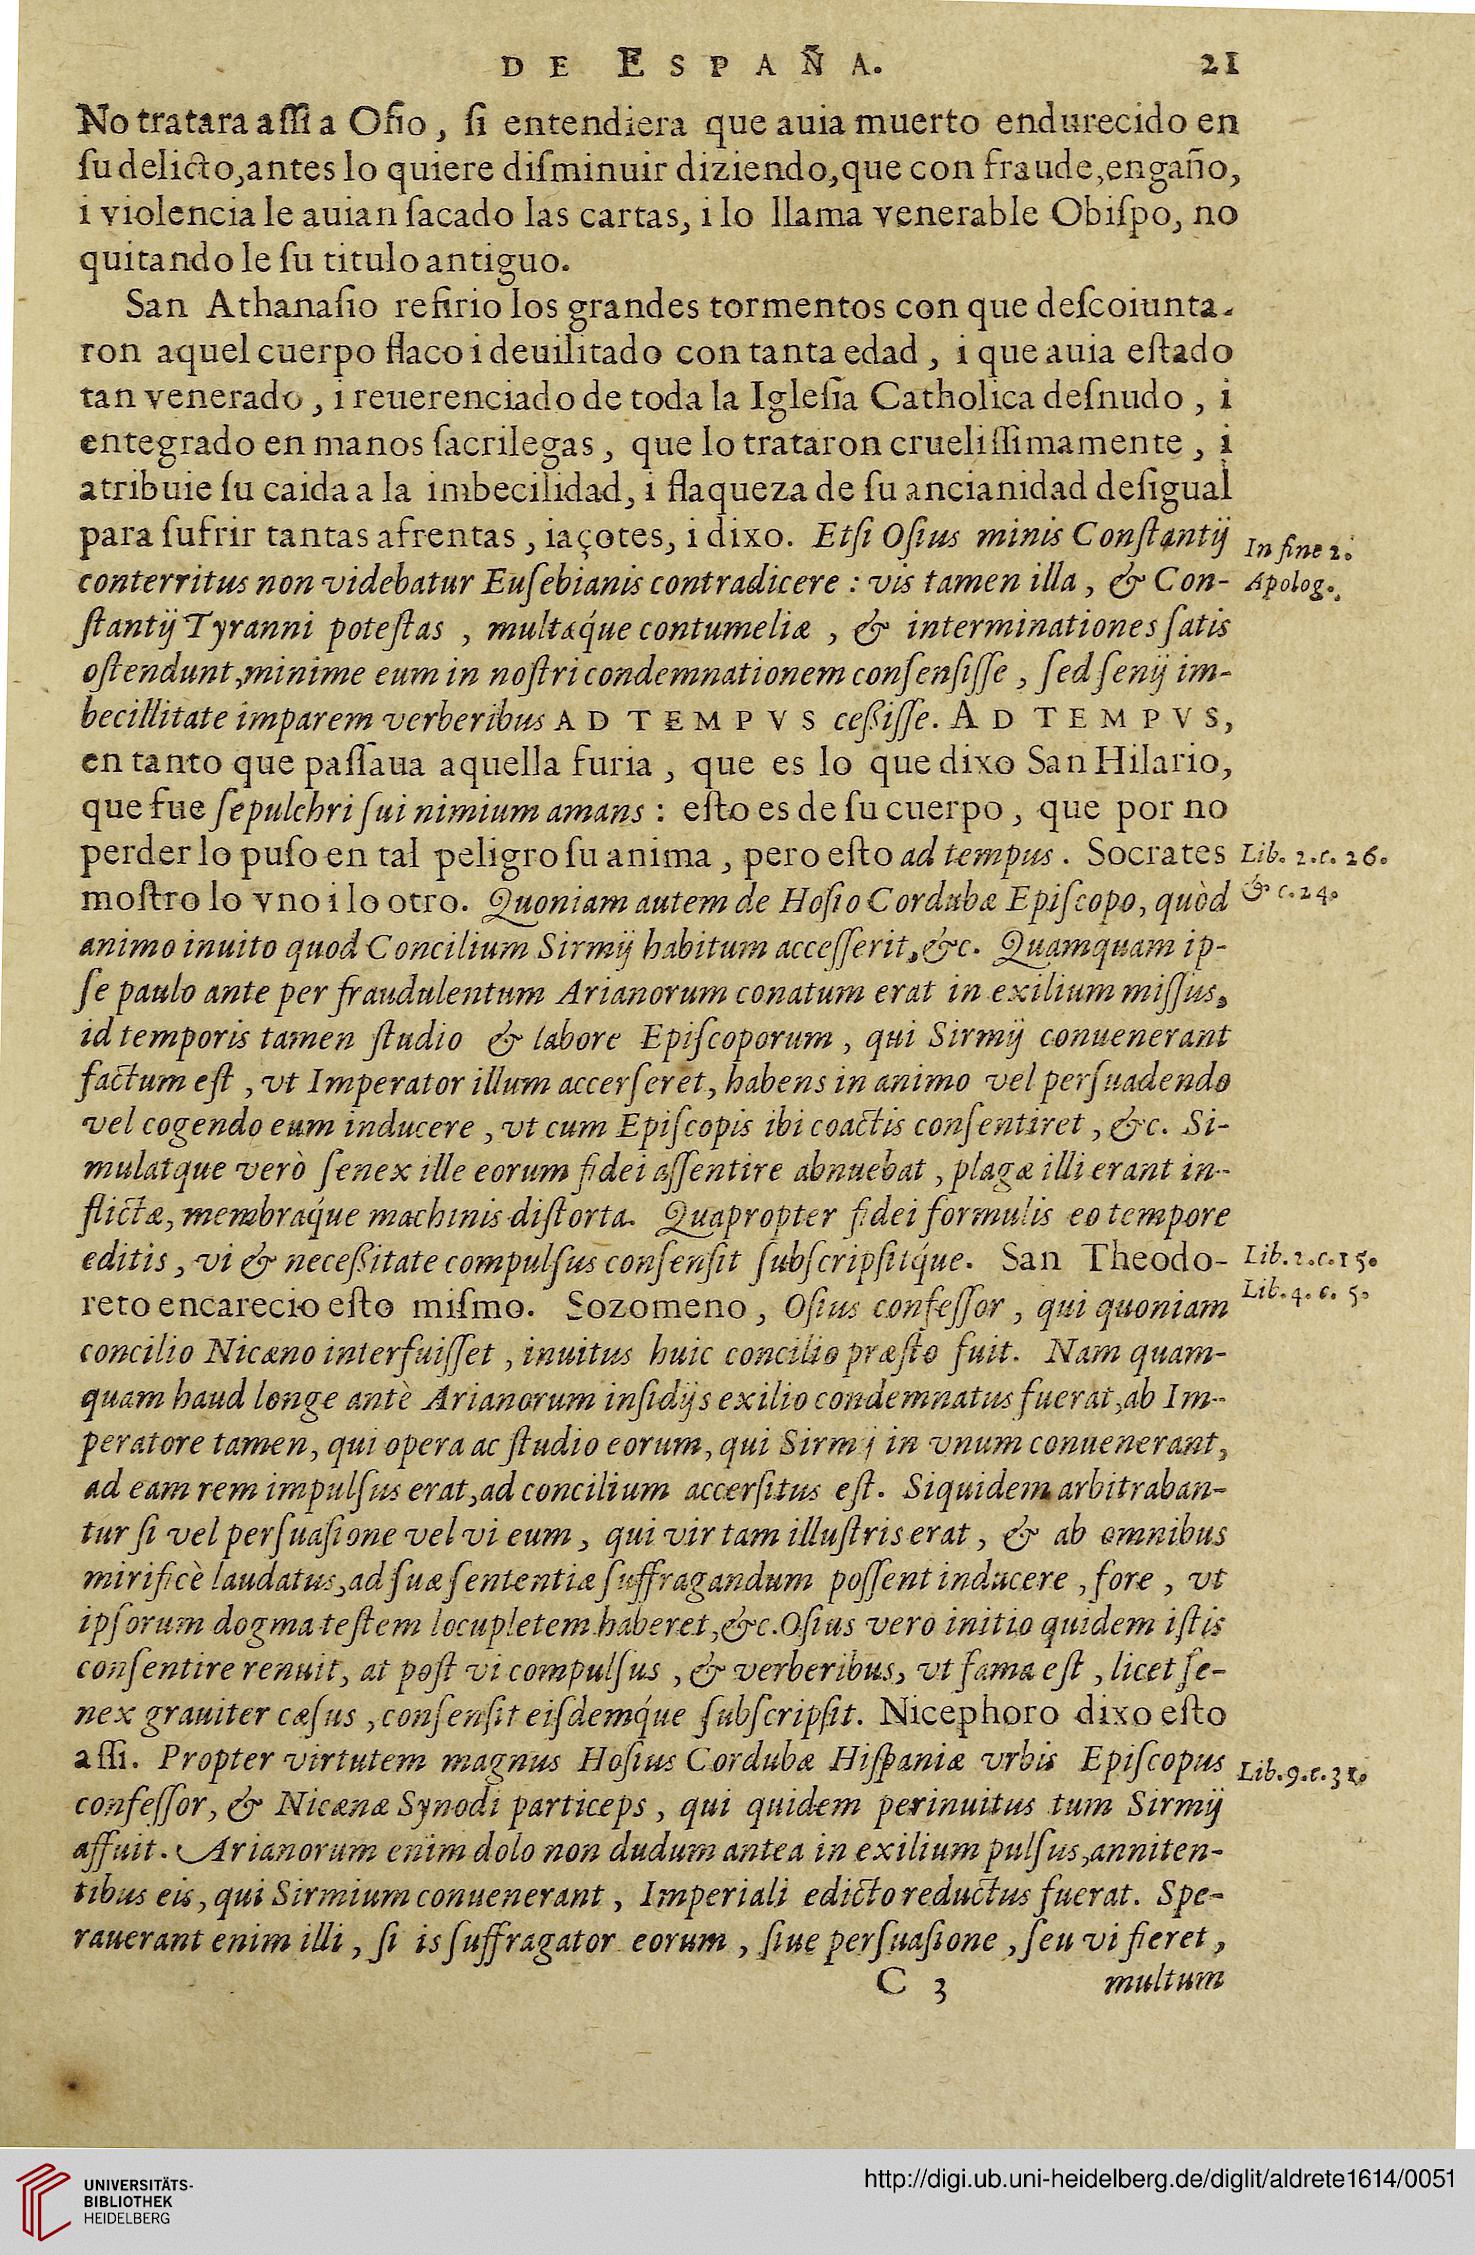 DE ESPAÑA. 21
No tratara aſſi a Oſio, ſi entendiera que auia muerto endurecido en
ſu delicto,antes lo quiere diſminuir diziendo,que con fraude,engaño,
i violencia le auian ſacado las cartas, i lo llama venerable Obiſpo, no
quitando le ſu titulo antiguo.
San Athanaſio refirio los grandes tormentos con que deſcoiunta-
ron aquel cuerpo flaco i deuilitado con tanta edad, i que auia eſtado
tan venerado, i reuerenciado de toda la Igleſia Catholica deſnudo, i
entegrado en manos ſacrilegas, que lo trataron crueliſſimamente, i
atribuie ſu caida a la imbecilidad, i flaqueza de ſu ancianidad deſigual
para ſufrir tantas afrentas, iaçotes, i dixo. Etſi Oſius minis Conſtantij
In fine 2.
conterritus non videbatur Euſebianis contradicere : vis tamen illa, & Con-
Apolog.
ſtantij Tyranni poteſtas, multæq́ue contumeliæ, & interminationes ſatis
oſtendunt,minime eum in noſtri condemnationem conſenſiſſe, ſed ſenij im-
becillitate imparem verberibus AD TEMPVS ceßiſſe. AD TEMPVS,
en tanto que paſſaua aquella furia, que es lo que dixo San Hilario,
que fue ſepulchri ſui nimium amans : eſto es de ſu cuerpo, que por no
perder lo puſo en tal peligro ſu anima, pero eſto ad tempus. Socrates
Lib. 2.c. 26.
moſtro lo vno i lo otro. Quoniam autem de Hoſio Cordubæ Epiſcopo, quòd
& c.24.
animo inuito quod Concilium Sirmij habitum acceſſerit,&c. Quamquam ip-
ſe paulo ante per fraudulentum Arianorum conatum erat in exilium miſſus,
id temporis tamen ſtudio & labore Epiſcoporum, qui Sirmij conuenerant
factum eſt, vt Imperator illum accerſeret, habens in animo vel perſuadendo
vel cogendo eum inducere, vt cum Epiſcopis ibi coactis conſentiret, &c. Si-
mulatque verò ſenex ille eorum fidei aſſentire abnuebat, plagæ illi erant in-
flictæ, membraq́ue machinis diſtorta. Quapropter fidei formulis eo tempore
editis, vi & neceßitate compulſus conſenſit ſubſcripſitq́ue. San Theodo-
Lib.2.c.15.
reto encarecio eſto miſmo. Sozomeno, Oſius confeſſor, qui quoniam
Lib.4.c. 5.
concilio Nicæno interfuiſſet, inuitus huic concilio præſto fuit. Nam quam-
quam haud longe antè Arianorum inſidijs exilio condemnatus fuerat,ab Im-
peratore tamen, qui opera ac ſtudio eorum, qui Sirmij in vnum conuenerant,
ad eam rem impulſus erat,ad concilium accerſitus eſt. Siquidem arbitraban-
tur ſi vel perſuaſione vel vi eum, qui vir tam illuſtris erat, & ab omnibus
mirificè laudatus,ad ſuæ ſententiæ ſuffragandum poſſent inducere, fore, vt
ipſorum dogma teſtem locupletem haberet,&c.Oſius vero initio quidem iſtis
conſentire renuit, at poſt vi compulſus, & verberibus, vt fama eſt, licet ſe-
nex grauiter cæſus, conſenſit eiſdemq́ue ſubſcripſit. Nicephoro dixo eſto
aſſi. Propter virtutem magnus Hoſius Cordubæ Hiſpaniæ vrbis Epiſcopus
Lib.9.c.31.
confeſſor, & Nicænæ Synodi particeps, qui quidem perinuitus tum Sirmij
affuit. Arianorum enim dolo non dudum antea in exilium pulſus,anniten-
tibus eis, qui Sirmium conuenerant, Imperiali edicto reductus fuerat. Spe-
rauerant enim illi, ſi is ſuffragator eorum, ſiue perſuaſione, ſeu vi fieret,
C 3 multum
UNIVERSITÄTS-
BIBLIOTHEK
HEIDELBERG
http://digi.ub.uni-heidelberg.de/diglit/aldrete1614/0051